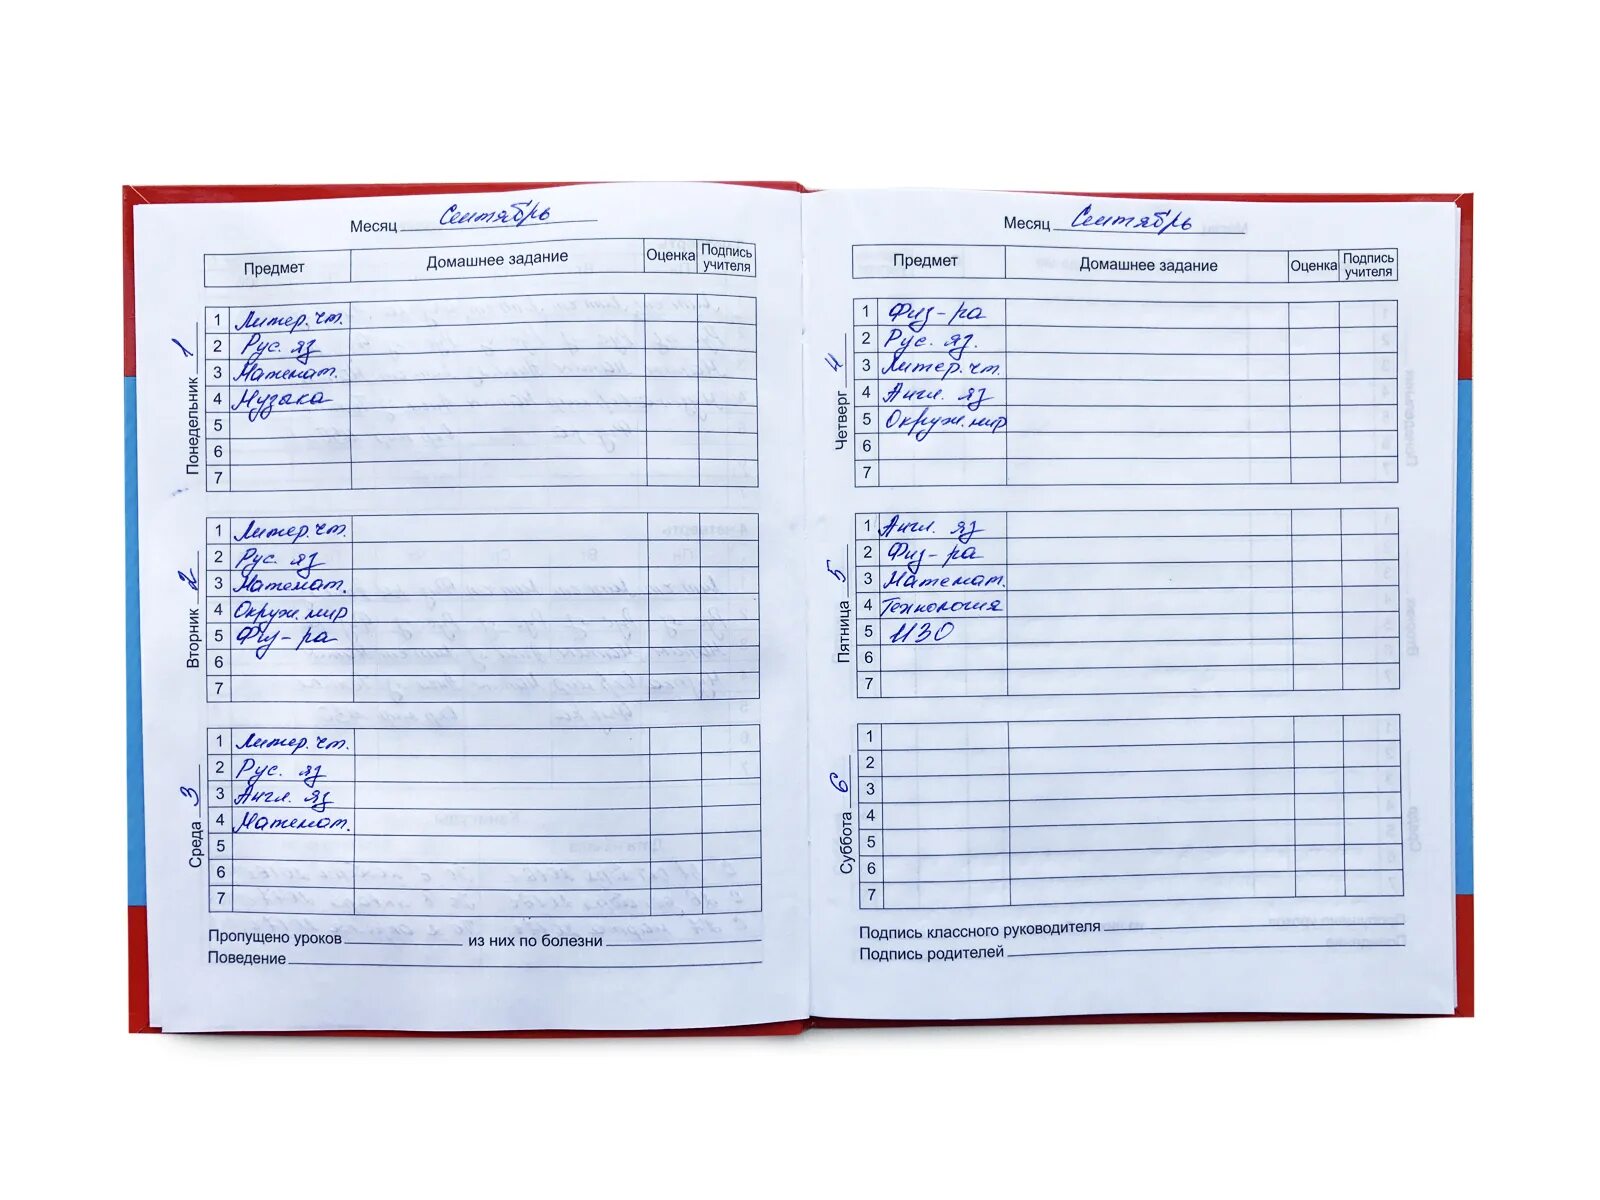 Месяц Сентябрь
Предмет Домашнее задание Оценка Подпись учителя
Понедельник 1
1 Литер. чт.
2 Рус. яз
3 Математ.
4 Музыка
5
6
7
Вторник 2
1 Литер. чт.
2 Рус. яз
3 Математ.
4 Окруж. мир
5 Физ-ра
6
7
Среда 3
1 Литер. чт.
2 Рус. яз
3 Англ. яз
4 Математ.
5
6
7
Пропущено уроков из них по болезни
Поведение
Месяц Сентябрь
Предмет Домашнее задание Оценка Подпись учителя
Четверг 4
1 Физ-ра
2 Рус. яз.
3 Литер. чт.
4 Англ. яз
5 Окруж. мир
6
7
Пятница 5
1 Англ. яз
2 Физ-ра
3 Математ.
4 Технология
5 ИЗО
6
7
Суббота 6
1
2
3
4
5
6
7
Подпись классного руководителя
Подпись родителей